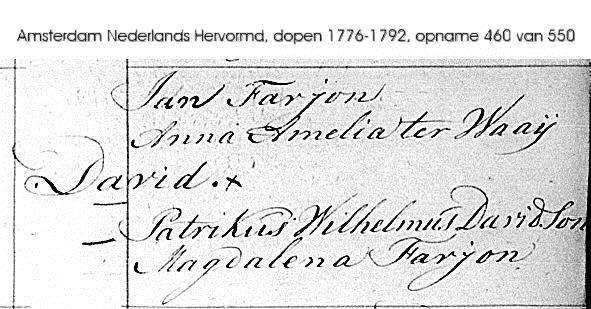 Amsterdam Nederlands Hervormd, dopen 1776-1792, opname 460 van 550
Jan Farjon
Anna Amelia ter Waaij
David. x
Patrikus Wilhelmus David.Son
Magdalena Farjon